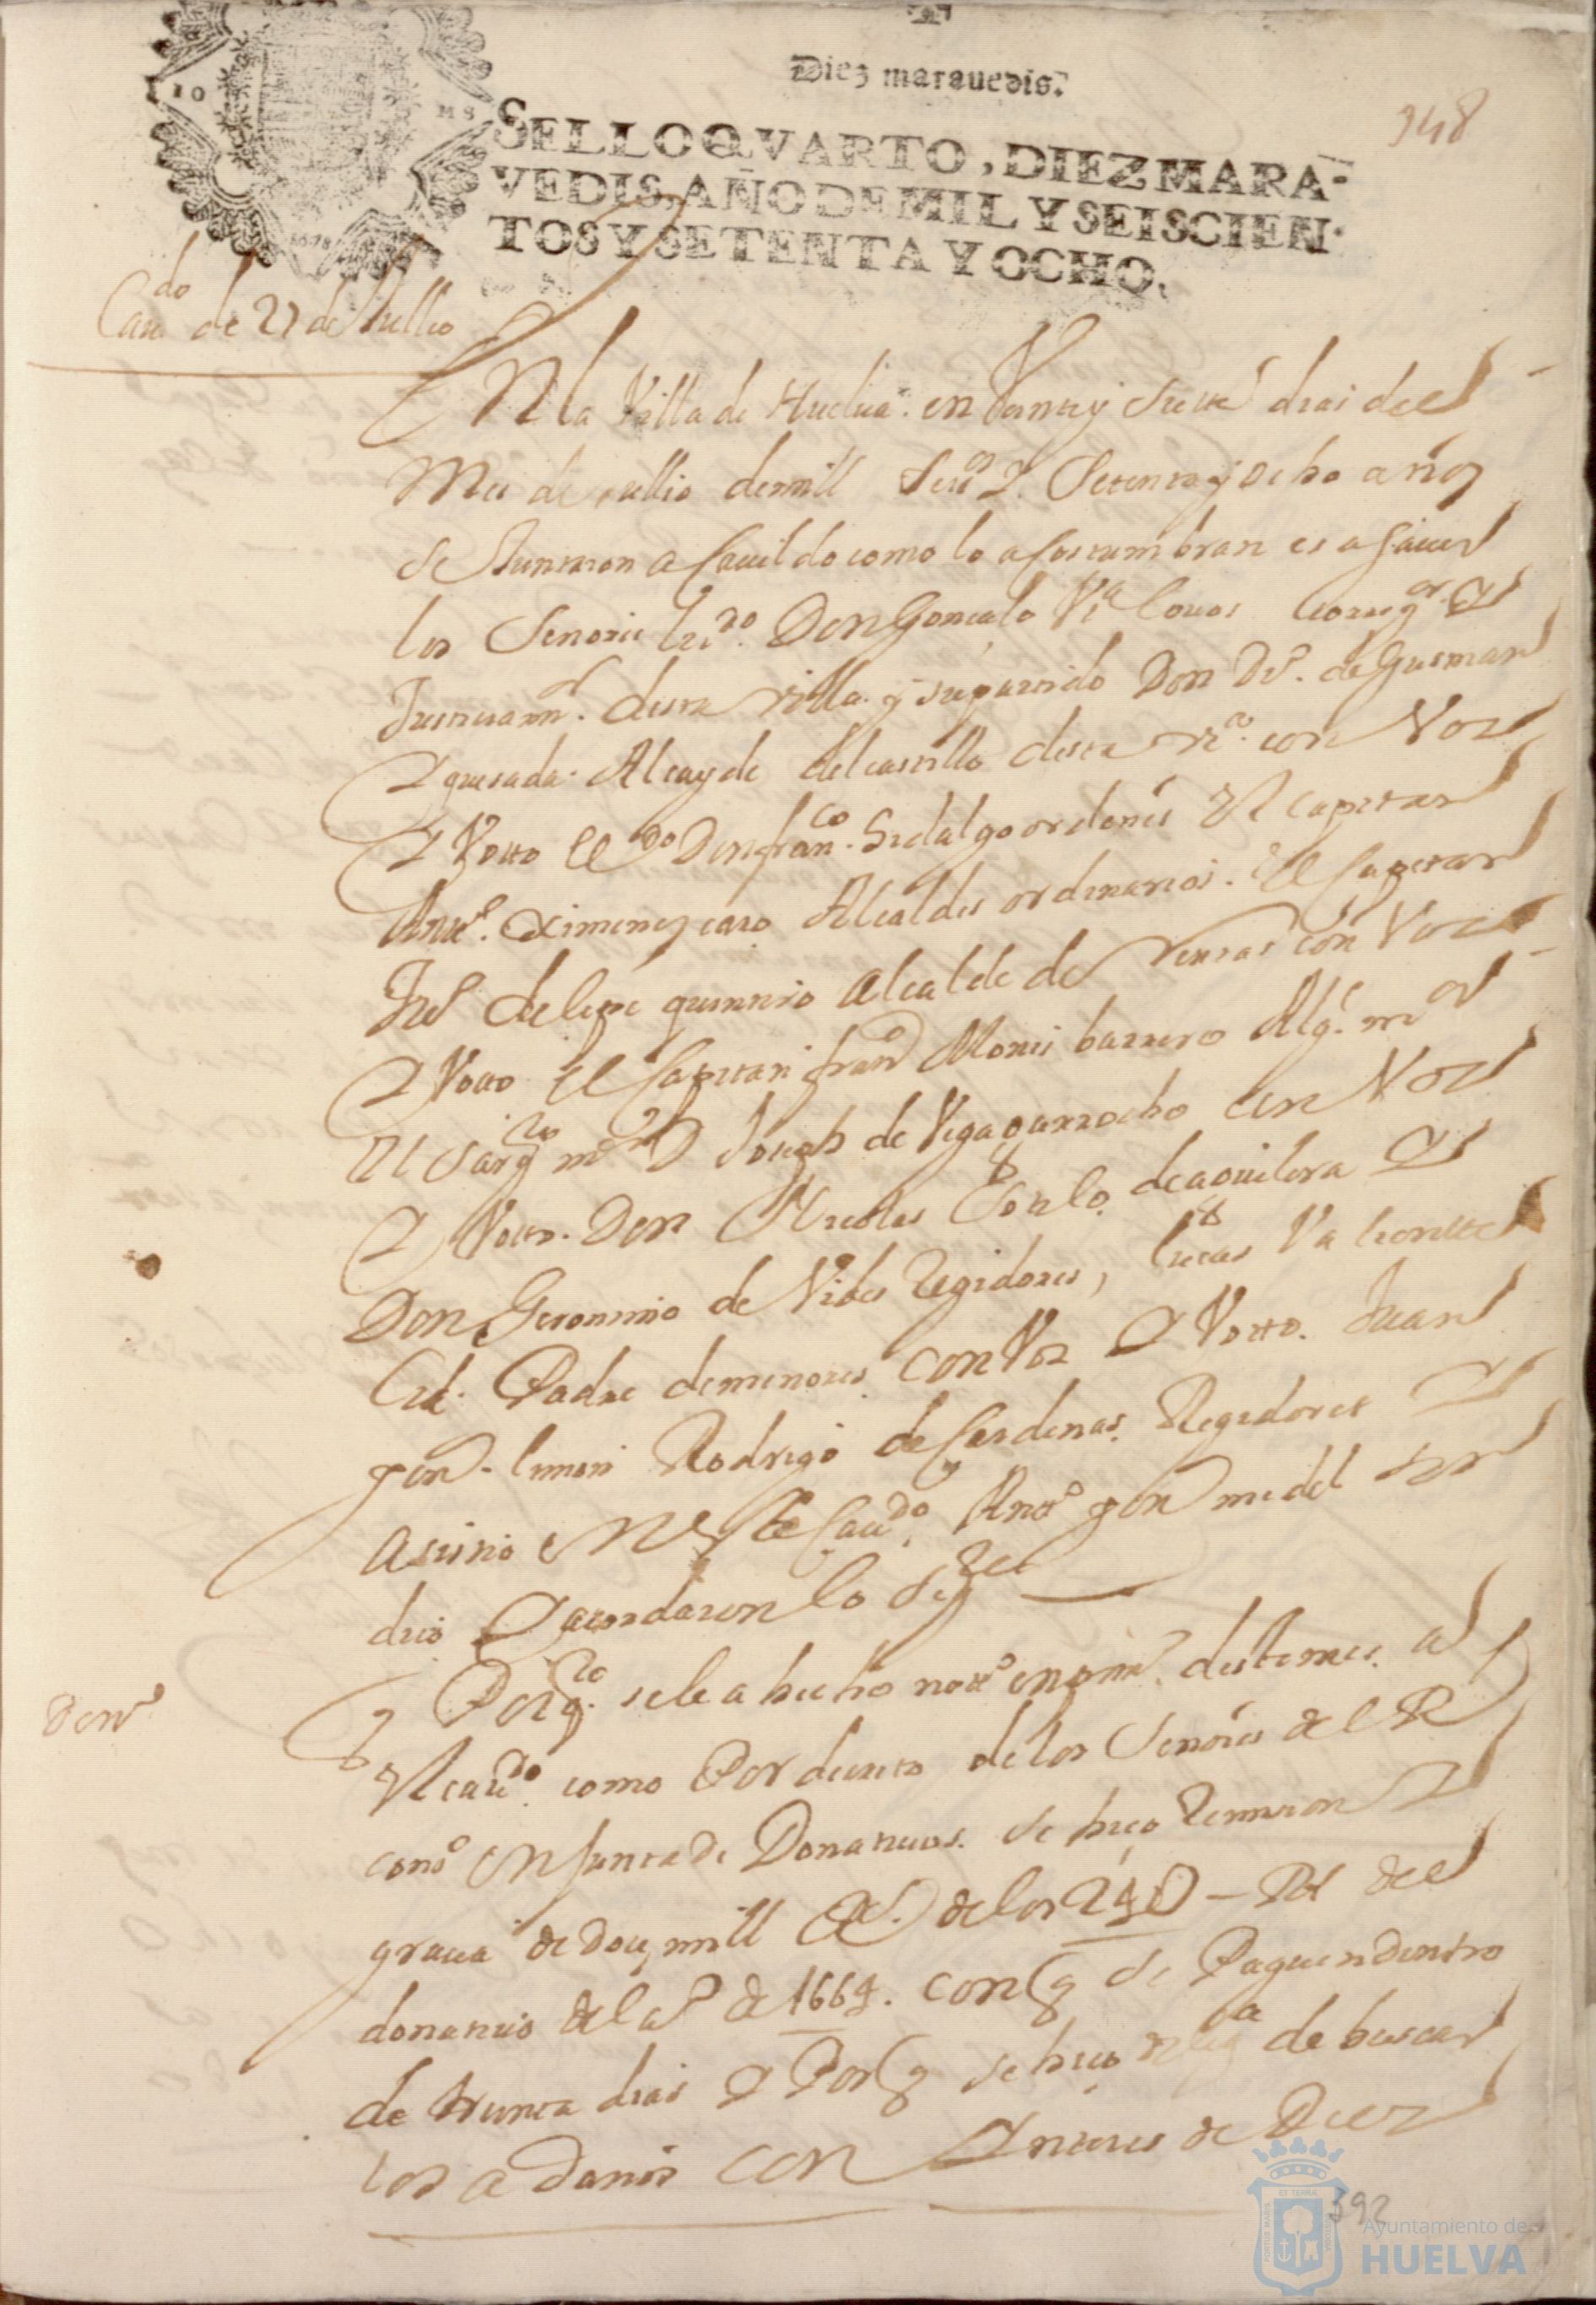 Diez marauedis.
948
10 MS
SELLO QVARTO, DIEZ MARA-
VEDIS, AÑO DE MIL Y SEISCIEN-
TOS Y SETENTA Y OCHO.
1678
Caudo de 27 de Jullio
En la Villa de Huelua en Veinte y siete dias del
Mes de Jullio de mill Seisos y Setenta y ocho años
se Juntaron a Cauildo como lo acostumbran es a sauer
los Senores Licdo Don Gonçalo Va Corregor y
Justicia mor desta villa y su partido Don Do de Gusman
y quesada Alcayde del castillo desta va con Voz
y Votto el Ldo Don franco hidalgo ordones el capitan
Anto ximenez caro Alcaldes ordinarios. El Capitan
Juo de lepe quintero Alcalde de Rentas con Voz
y Votto El Capitan franco Mones barrero Algl mor
el sargto mor D Joseph de Vega garrocho con Voz
y Votto. Don Nicolas de aguilera y
Don Geronimo de Vides Regidores, lucas Va
Padre de menores con Voz y Votto. Juan
gon limon Rodrigo de Cardenas Regidores y
asistio en este Caudo Anto gon medel sn
dico y acordaron lo sigte
Don
Por qto se le a hecho noto en primo deste mes al
el caudo como Por decreto de los Senores del R
conso en Junta de Donatiuos se hiço Remision y
gracia de doz mill Rs de los 24U — Rs del
donatiuo del ao de 1664. con q se Paguen dentro
de treinta dias y Por q se hiço de buscar
los a Daño con Ynteres de Diez
392
Ayuntamiento de
HUELVA